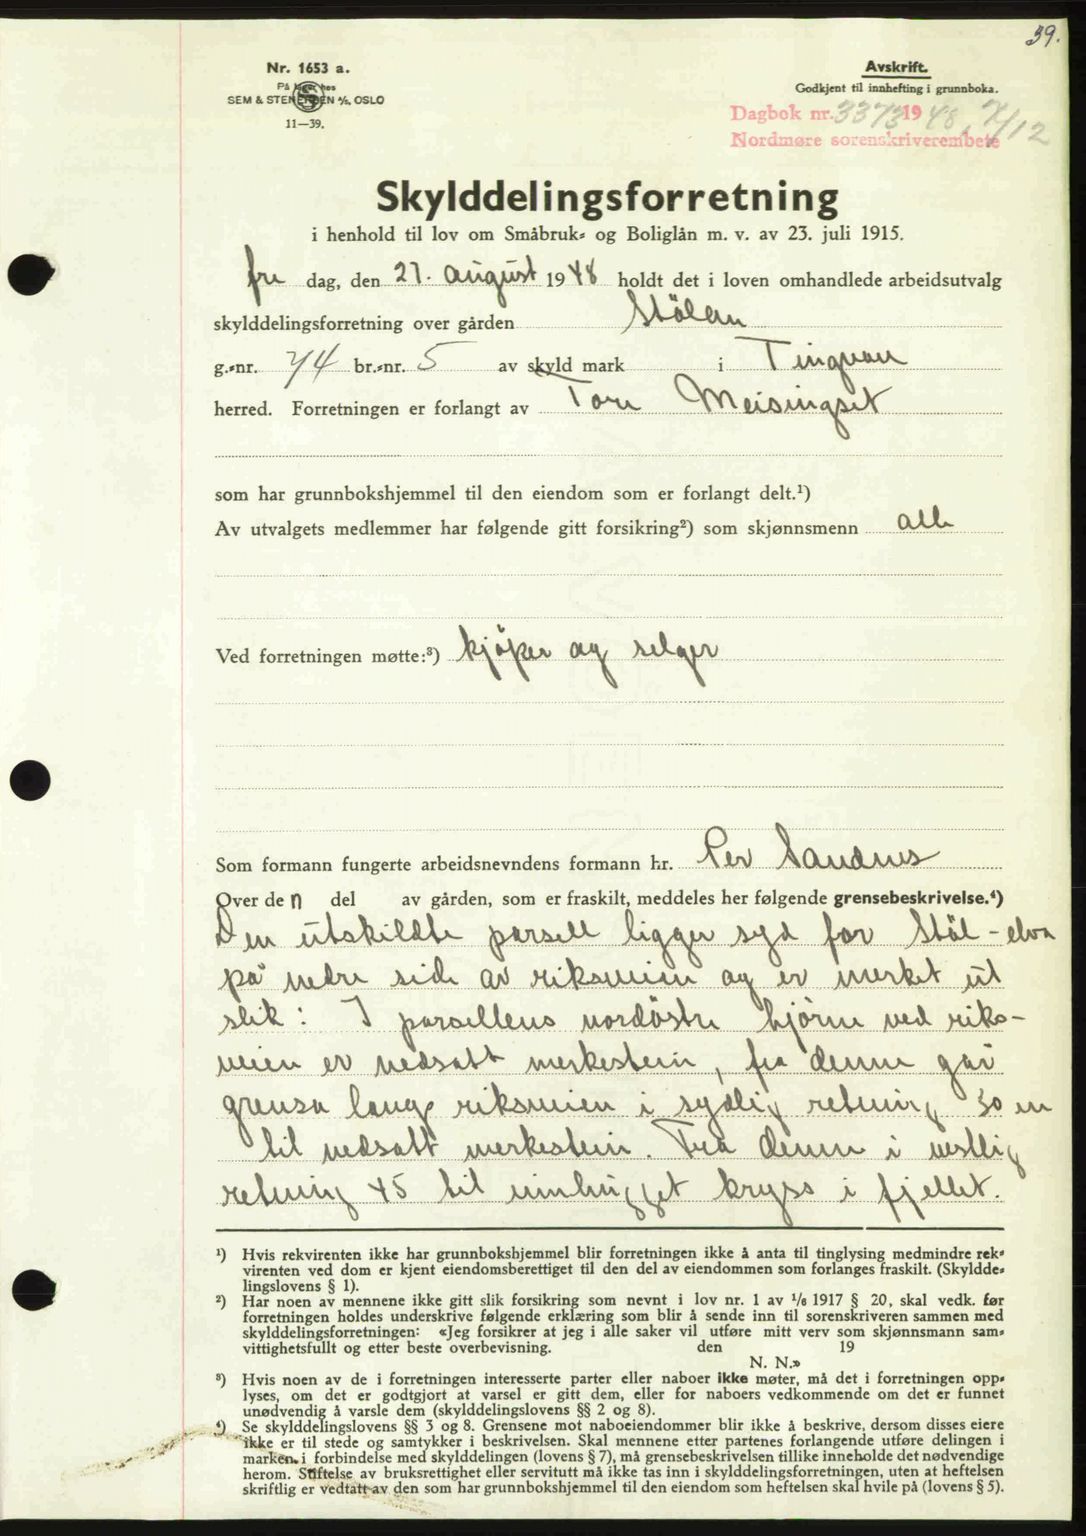 39.
Nr. 1653 a.
På lager hos
SEM & STENERSEN A/S, OSLO
11—39.
Avskrift.
Godkjent til innhefting i grunnboka.
Dagbok nr. 3373 1948, 7/12
Nordmøre sorenskriverembete
Skylddelingsforretning
i henhold til lov om Småbruk- og Boliglån m. v. av 23. juli 1915.
fre dag, den 27. august 1948 holdt det i loven omhandlede arbeidsutvalg
skylddelingsforretning over gården Stölen
g.-nr. 74 br.-nr. 5 av skyld mark i Tingvoll
herred. Forretningen er forlangt av Tore Meisingset
som har grunnbokshjemmel til den eiendom som er forlangt delt.¹)
Av utvalgets medlemmer har følgende gitt forsikring²) som skjønnsmenn alle
Ved forretningen møtte:³) kjöper og selger
Som formann fungerte arbeidsnevndens formann hr. Per Sandnes
Over den del av gården, som er fraskilt, meddeles her følgende grensebeskrivelse.⁴)
Den utskildte parsell ligger syd for Stöl-elva
på nedre side av riksveien og er merket ut
slik: I parsellens nordöstre hjörne ved riks-
veien er nedsatt merkestein, fra denne går
grensa langs riksveien i sydlig retning 30 m
til nedsatt merkestein. Fra denne i vestlig
retning 45 til innhugget kryss i fjellet.
¹) Hvis rekvirenten ikke har grunnbokshjemmel blir forretningen ikke å anta til tinglysing medmindre rek-
virenten ved dom er kjent eiendomsberettiget til den del av eiendommen som forlanges fraskilt. (Skyldde-
lingslovens § 1).
²) Har noen av mennene ikke gitt slik forsikring som nevnt i lov nr. 1 av 1/6 1917 § 20, skal vedk. før
forretningen holdes underskrive følgende erklæring som blir å sende inn til sorenskriveren sammen med
skylddelingsforretningen: «Jeg forsikrer at jeg i alle saker vil utføre mitt verv som skjønnsmann sam-
vittighetsfullt og etter beste overbevisning. den 19
N. N.»
³) Hvis noen av de i forretningen interesserte parter eller naboer ikke møter, må det i forretningen opp-
lyses, om det er godtgjort at varsel er gitt dem, eller for naboers vedkommende om det er funnet
unødvendig å varsle dem (skylddelingslovens §§ 2 og 8).
⁴) Se skylddelingslovens §§ 3 og 8. Grensene mot naboeiendommer blir ikke å beskrive, dersom disses eiere
ikke er til stede og samtykker i beskrivelsen. Skal mennene etter partenes forlangende utføre delingen i
marken i forbindelse med skylddelingen (lovens § 7), må grensebeskrivelsen tillike inneholde det nødvendige
herom. Stiftelse av bruksrettighet eller servitutt må ikke tas inn i skylddelingsforretningen, uten at heftelsen
skriftlig er vedtatt av den som har grunnbokshjemmel til den eiendom som heftelsen skal hvile på (lovens § 5).